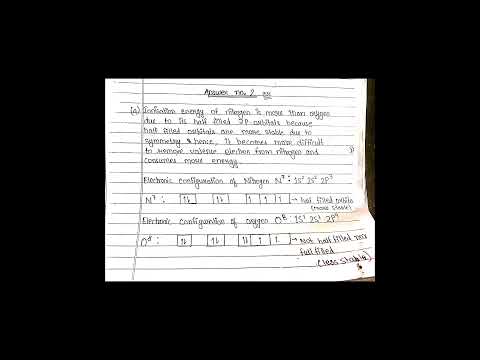 Answer no. 2
(a) Ionisation energy of nitrogen is more than oxygen
due to its half filled 2p orbitals because
half filled orbitals are more stable due to
symmetry & hence, it becomes more difficult
to remove valence electron from nitrogen and
consumes more energy.
Electronic configuration of Nitrogen N⁷ : 1S² 2S² 2P³
N⁷ : 1l 1l 1 1 1 → half filled orbitals
(more stable)
Electronic configuration of oxygen O⁸ : 1S² 2S² 2P⁴
O⁸ : 1l 1l 1l 1 1 → Not half filled nor
full filled
(less stable)